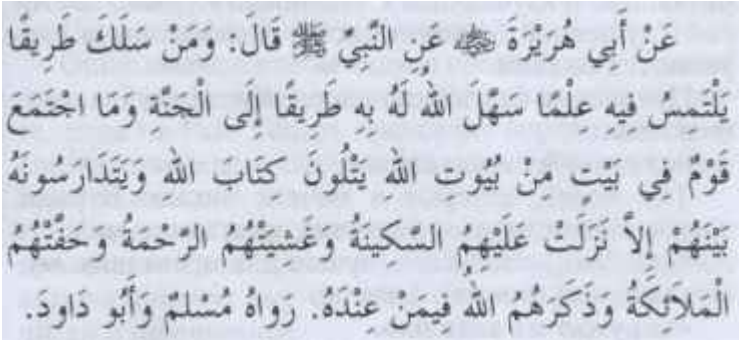 عَنْ أَبِي هُرَيْرَةَ ﵁ عَنِ النَّبِيِّ ﷺ قَالَ: وَمَنْ سَلَكَ طَرِيقًا
يَلْتَمِسُ فِيهِ عِلْمًا سَهَّلَ اللهُ لَهُ بِهِ طَرِيقًا إِلَى الْجَنَّةِ وَمَا اجْتَمَعَ
قَوْمٌ فِي بَيْتٍ مِنْ بُيُوتِ اللهِ يَتْلُونَ كِتَابَ اللهِ وَيَتَدَارَسُونَهُ
بَيْنَهُمْ إِلاَّ نَزَلَتْ عَلَيْهِمُ السَّكِينَةُ وَغَشِيَتْهُمُ الرَّحْمَةُ وَحَفَّتْهُمُ
الْمَلاَئِكَةُ وَذَكَرَهُمُ اللهُ فِيمَنْ عِنْدَهُ. رَوَاهُ مُسْلِمٌ وَأَبُو دَاودَ.